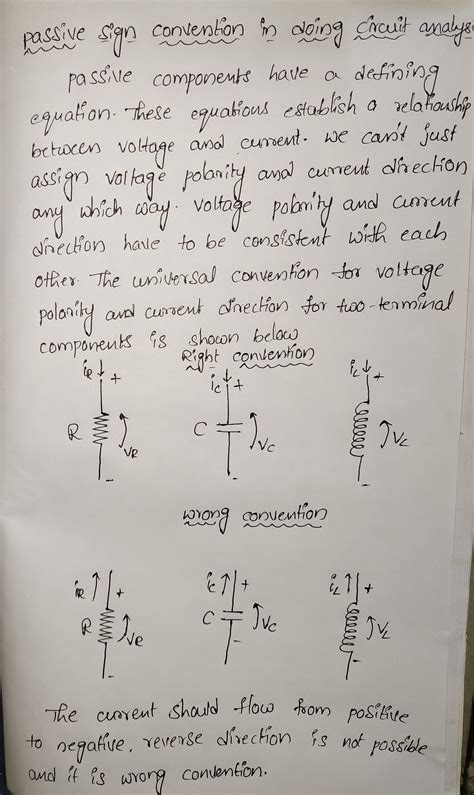 passive sign convention in doing circuit analys
passive components have a defining
equation. These equations establish a relationship
between voltage and current. we can't just
assign voltage polarity and current direction
any which way. voltage polarity and current
direction have to be consistent with each
other. The universal convention for voltage
polarity and current direction for two-terminal
components is shown below
Right convention
iR ↓ + ic ↓ + iL ↓ +
R VR C Vc VL
- - -
wrong convention
iR ↑ + ic ↑ + iL ↑ +
R VR C Vc VL
- - -
The current should flow from positive
to negative, reverse direction is not possible
and it is wrong convention.